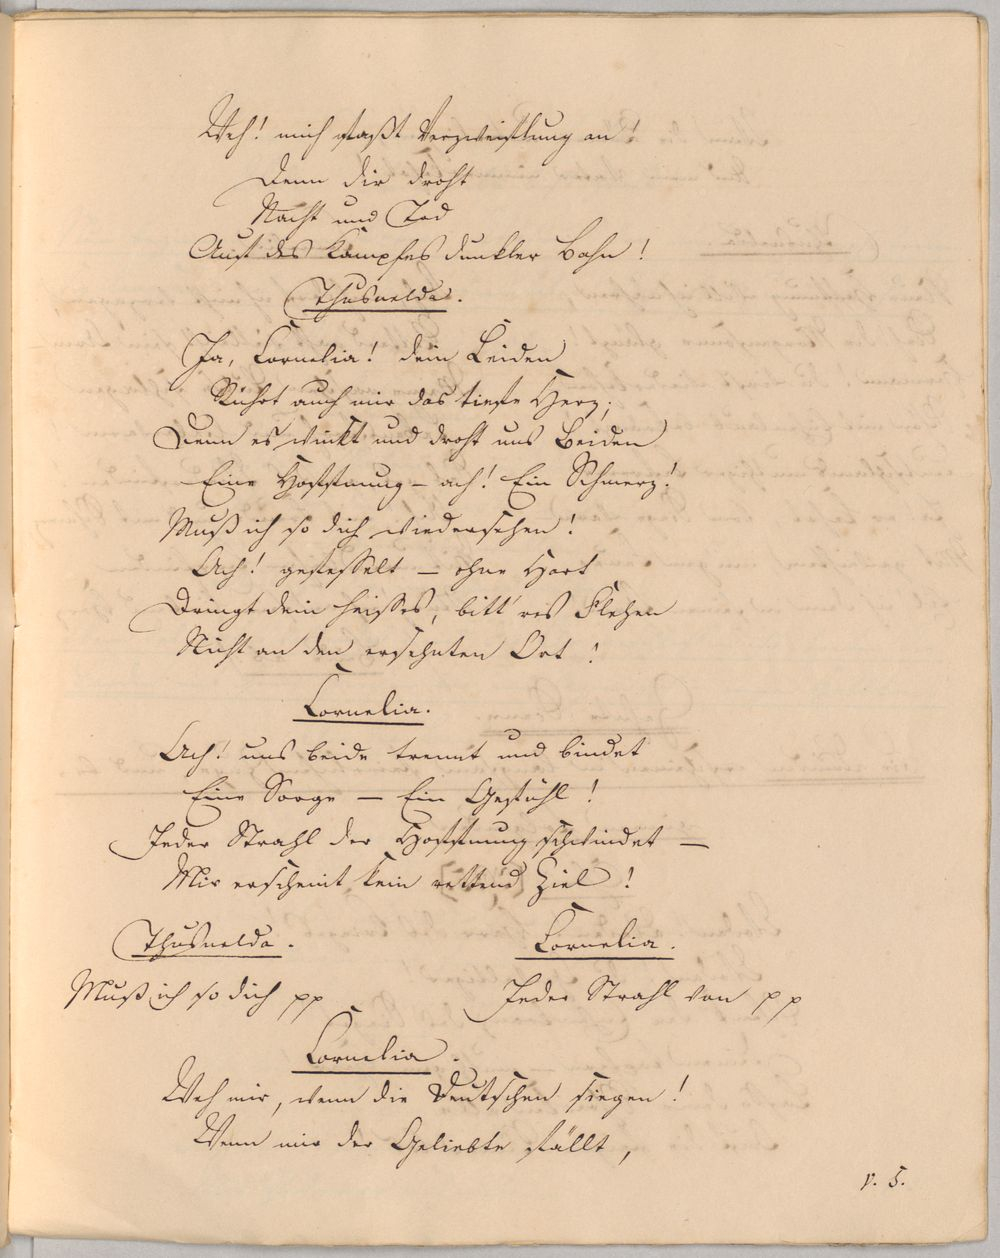 Weh! mich faßt Verzweiflung an!
Denn dir droht
Nacht und Tod
Auf des Kampfes dunkler Bahn!
Thusnelda.
Ja, Cornelia! dein Leiden
Rührt auch mir das tiefste Herz;
Denn es winkt und droht uns Beiden
Eine Hoffnung – ach! Ein Schmerz!
Muß ich so dich wiedersehen!
Ach! gefesselt – ohne Hort
Dringt dein heisses, bitt'res Flehen
Nicht an den ersehnten Ort!
Cornelia.
Ach! uns beide trennt und bindet
Eine Sorge – Ein Gefühl!
Jeder Strahl der Hoffnung schwindet –
Mir erscheint kein rettend Ziel!
Thusnelda. Cornelia.
Muß ich so dich pp Jeder Strahl von pp
Cornelia.
Weh mir, wenn die Deutschen siegen!
Wenn mir der Geliebte fällt,
v. s.